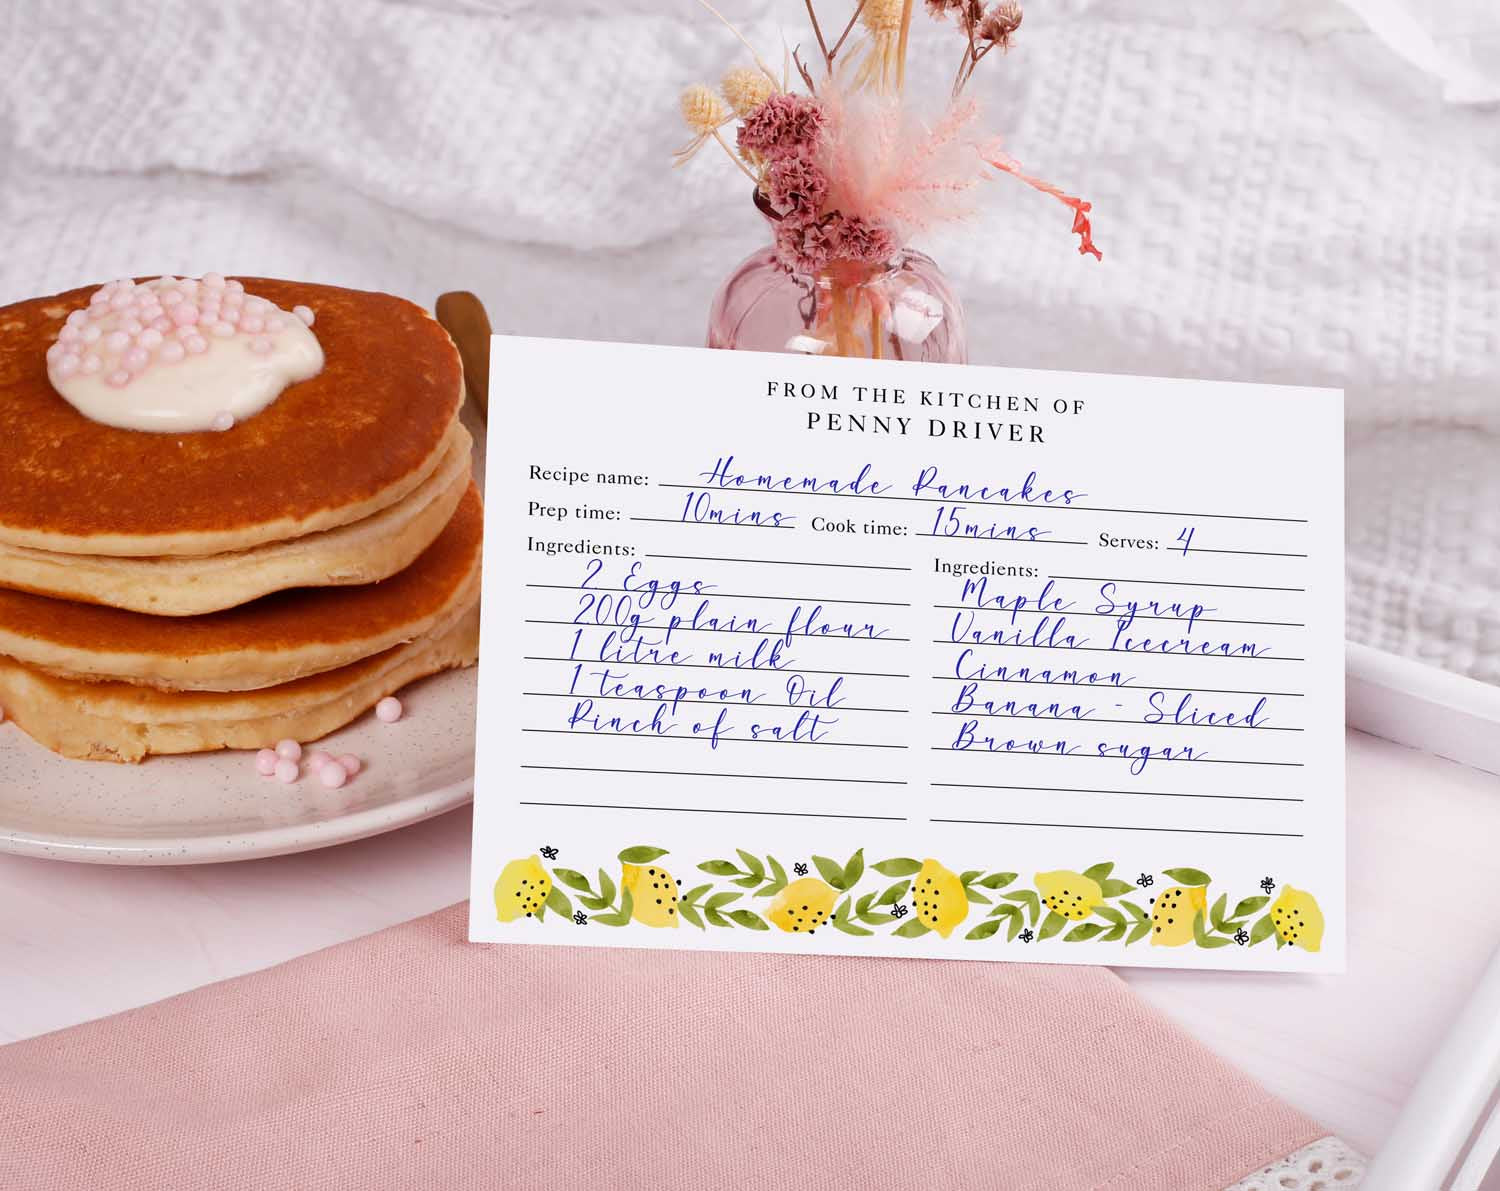 FROM THE KITCHEN OF
PENNY DRIVER
Recipe name: Homemade Pancakes
Prep time: 10mins Cook time: 15mins Serves: 4
Ingredients:
2 Eggs
200g plain flour
1 litre milk
1 teaspoon Oil
Pinch of salt
Ingredients:
Maple Syrup
Vanilla Icecream
Cinnamon
Banana - Sliced
Brown sugar